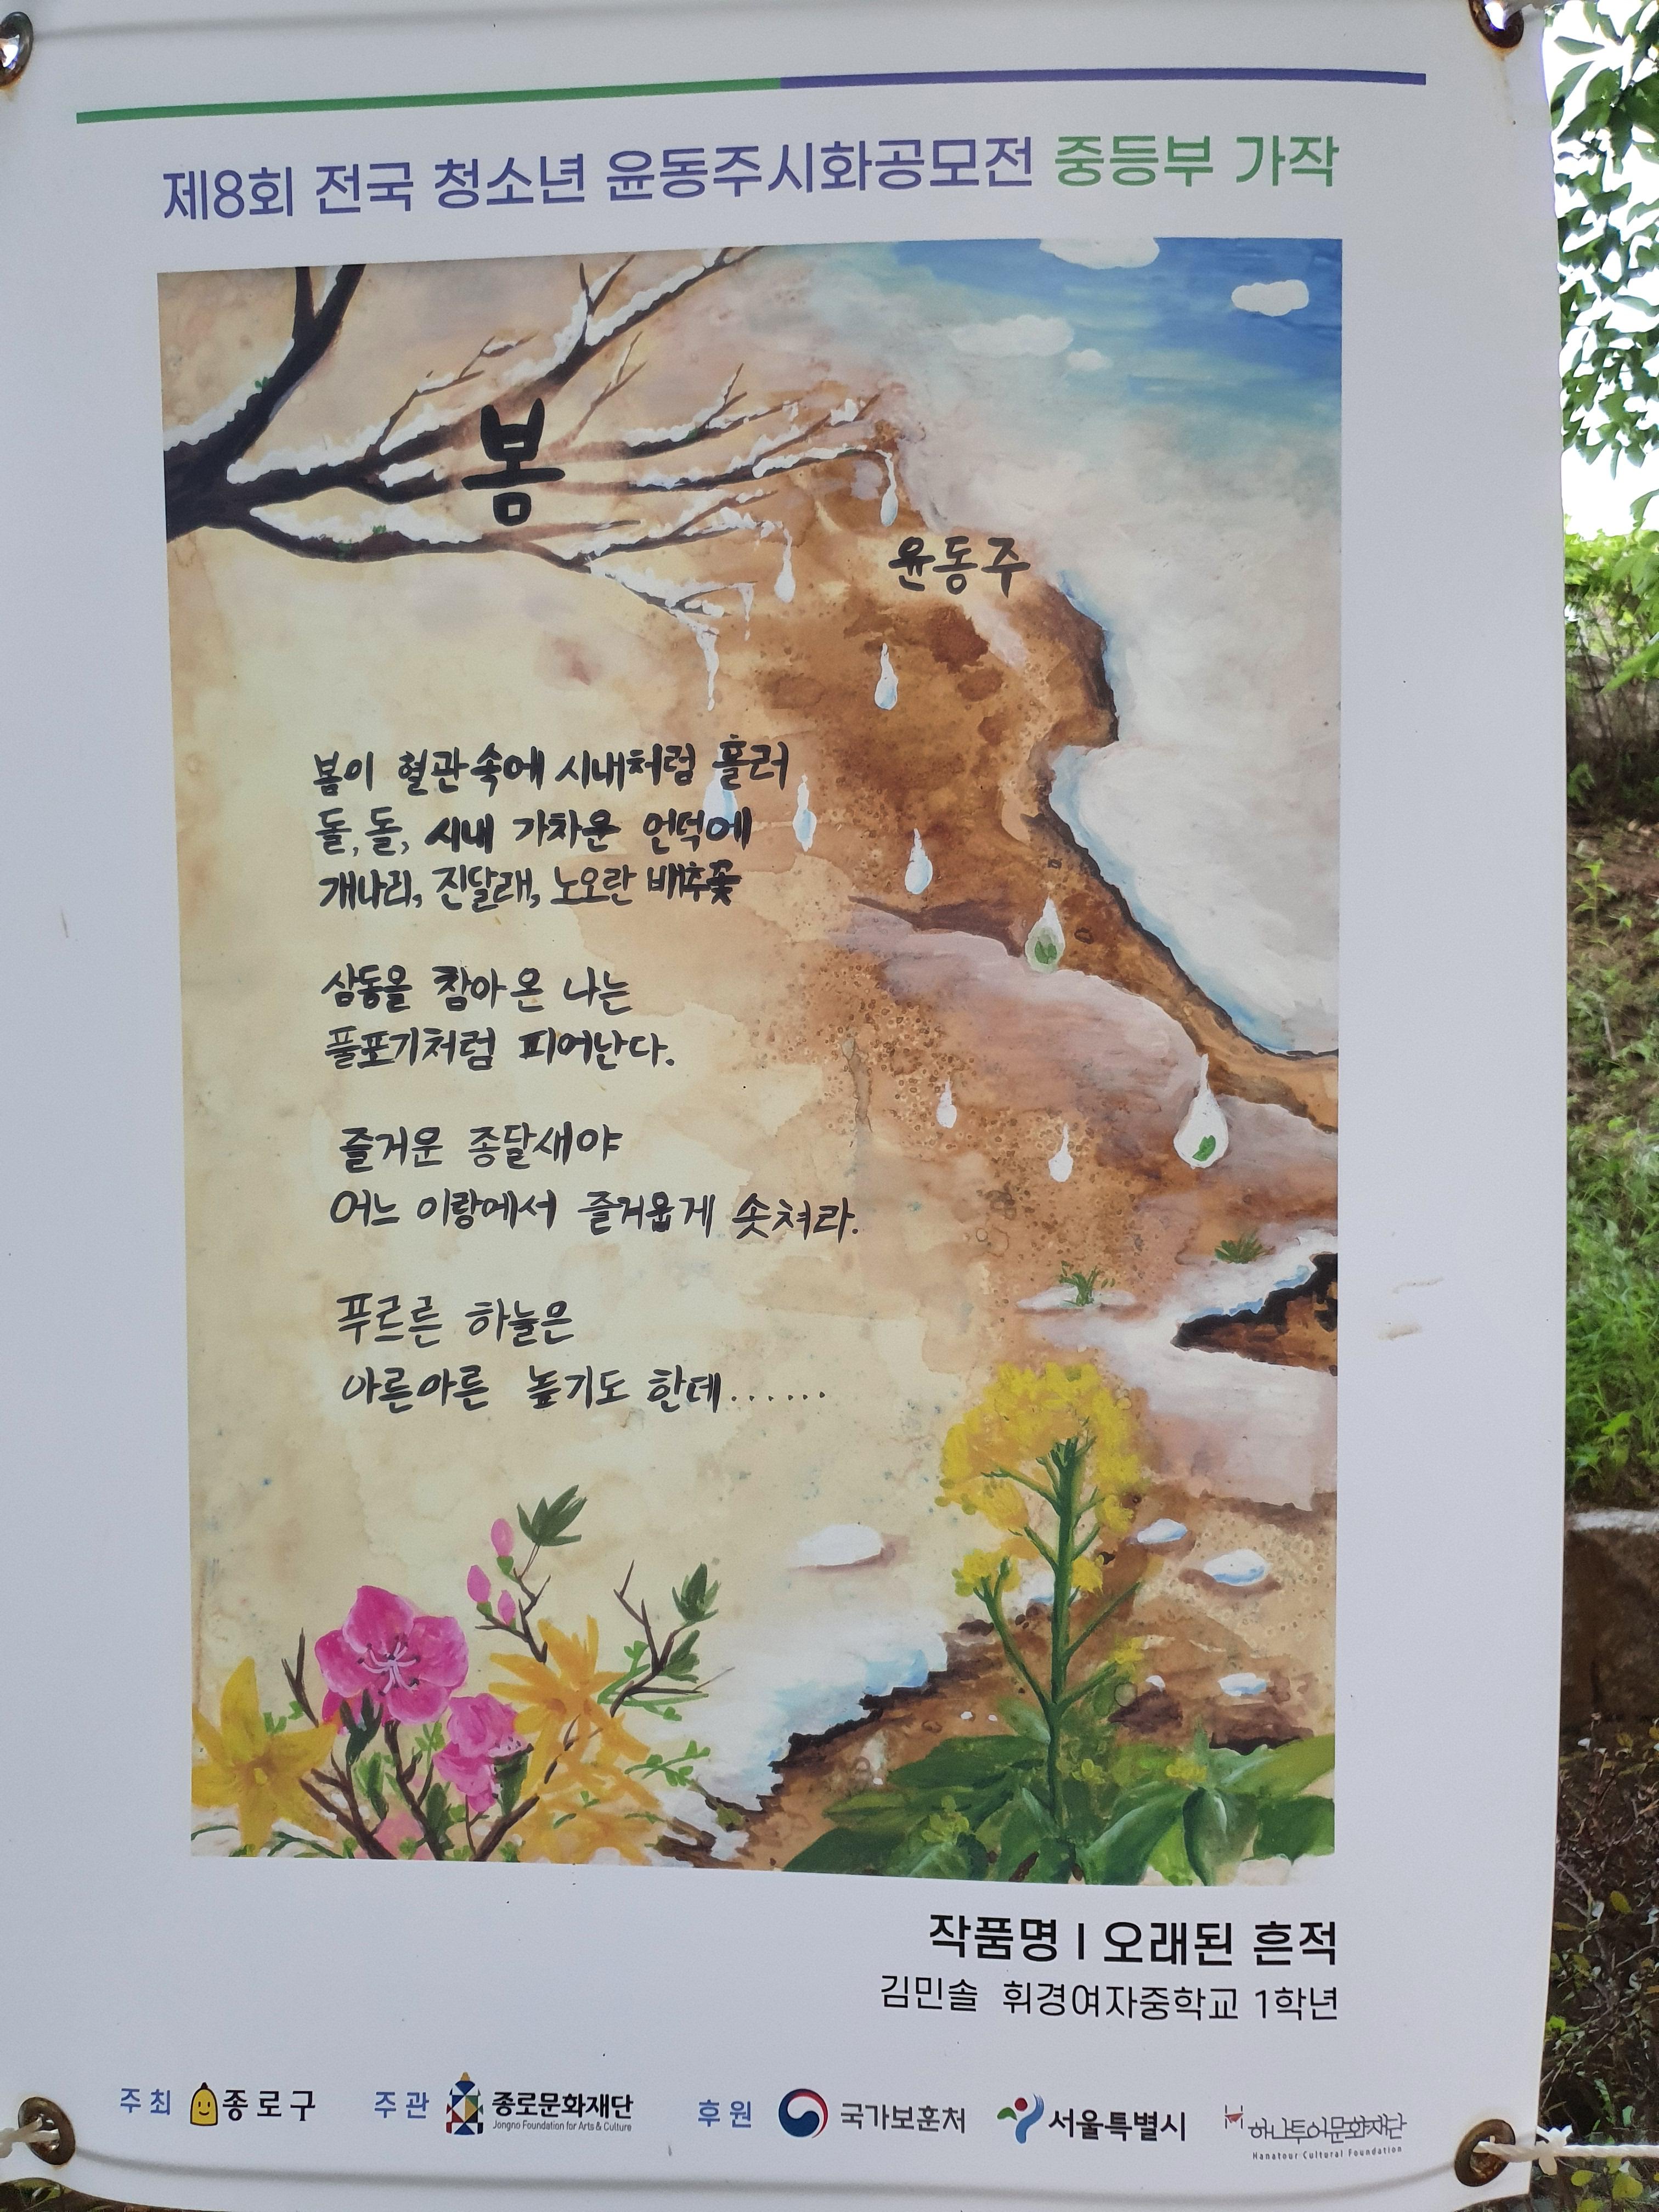 제8회 전국 청소년 윤동주시화공모전 중등부 가작
봄
윤동주
봄이 혈관속에 시내처럼 흘러
돌, 돌, 시내 가차운 언덕에
개나리, 진달래, 노오란 배추꽃
삼동을 참아온 나는
풀포기처럼 피어난다.
즐거운 종달새야
어느 이랑에서 즐거웁게 솟쳐라.
푸르른 하늘은
아른아른 높기도 한데......
작품명 | 오래된 흔적
김민솔 휘경여자중학교 1학년
주최 종로구 주관 종로문화재단 후원 국가보훈처 서울특별시 하나투어문화재단
Jongno Foundation for Arts & Culture
Hanatour Cultural Foundation